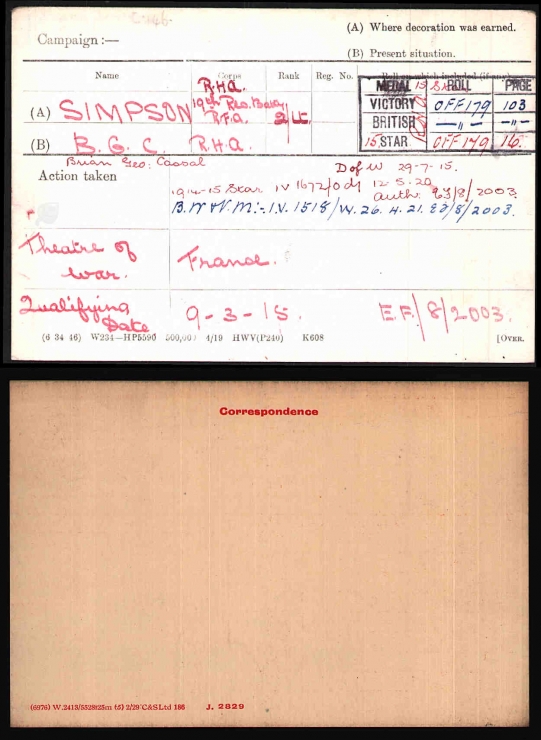 (A) Where decoration was earned.
Campaign :—
(B) Present situation.
Name Corps Rank Reg. No. Roll on which included (if any)
MEDAL ROLL PAGE
R.H.A.
(A) SIMPSON 19th Res. Batty R.F.A. 2/Lt.
VICTORY OFF 179 103
BRITISH —"— —"—
(B) B. G. C. R.H.A.
15 STAR OFF 179 16.
Brian Geo: Cassal
Action taken
D of W 29-7-15.
1914-15 Star IV 1672/O dt 12-5-20 auth. EF/8/2003
B.W & V.M:- I.V. 1518/W. 26. 4. 21. EF/8/2003.
Theatre of War. France.
Qualifying Date 9-3-15. E.F./8/2003.
(6 34 46) W234—HP5590 500,000 4/19 HWV(P240) K608 [OVER.
Correspondence
(6976) W.2413/5528 125m (5) 2/29 C&S Ltd 186 J. 2829